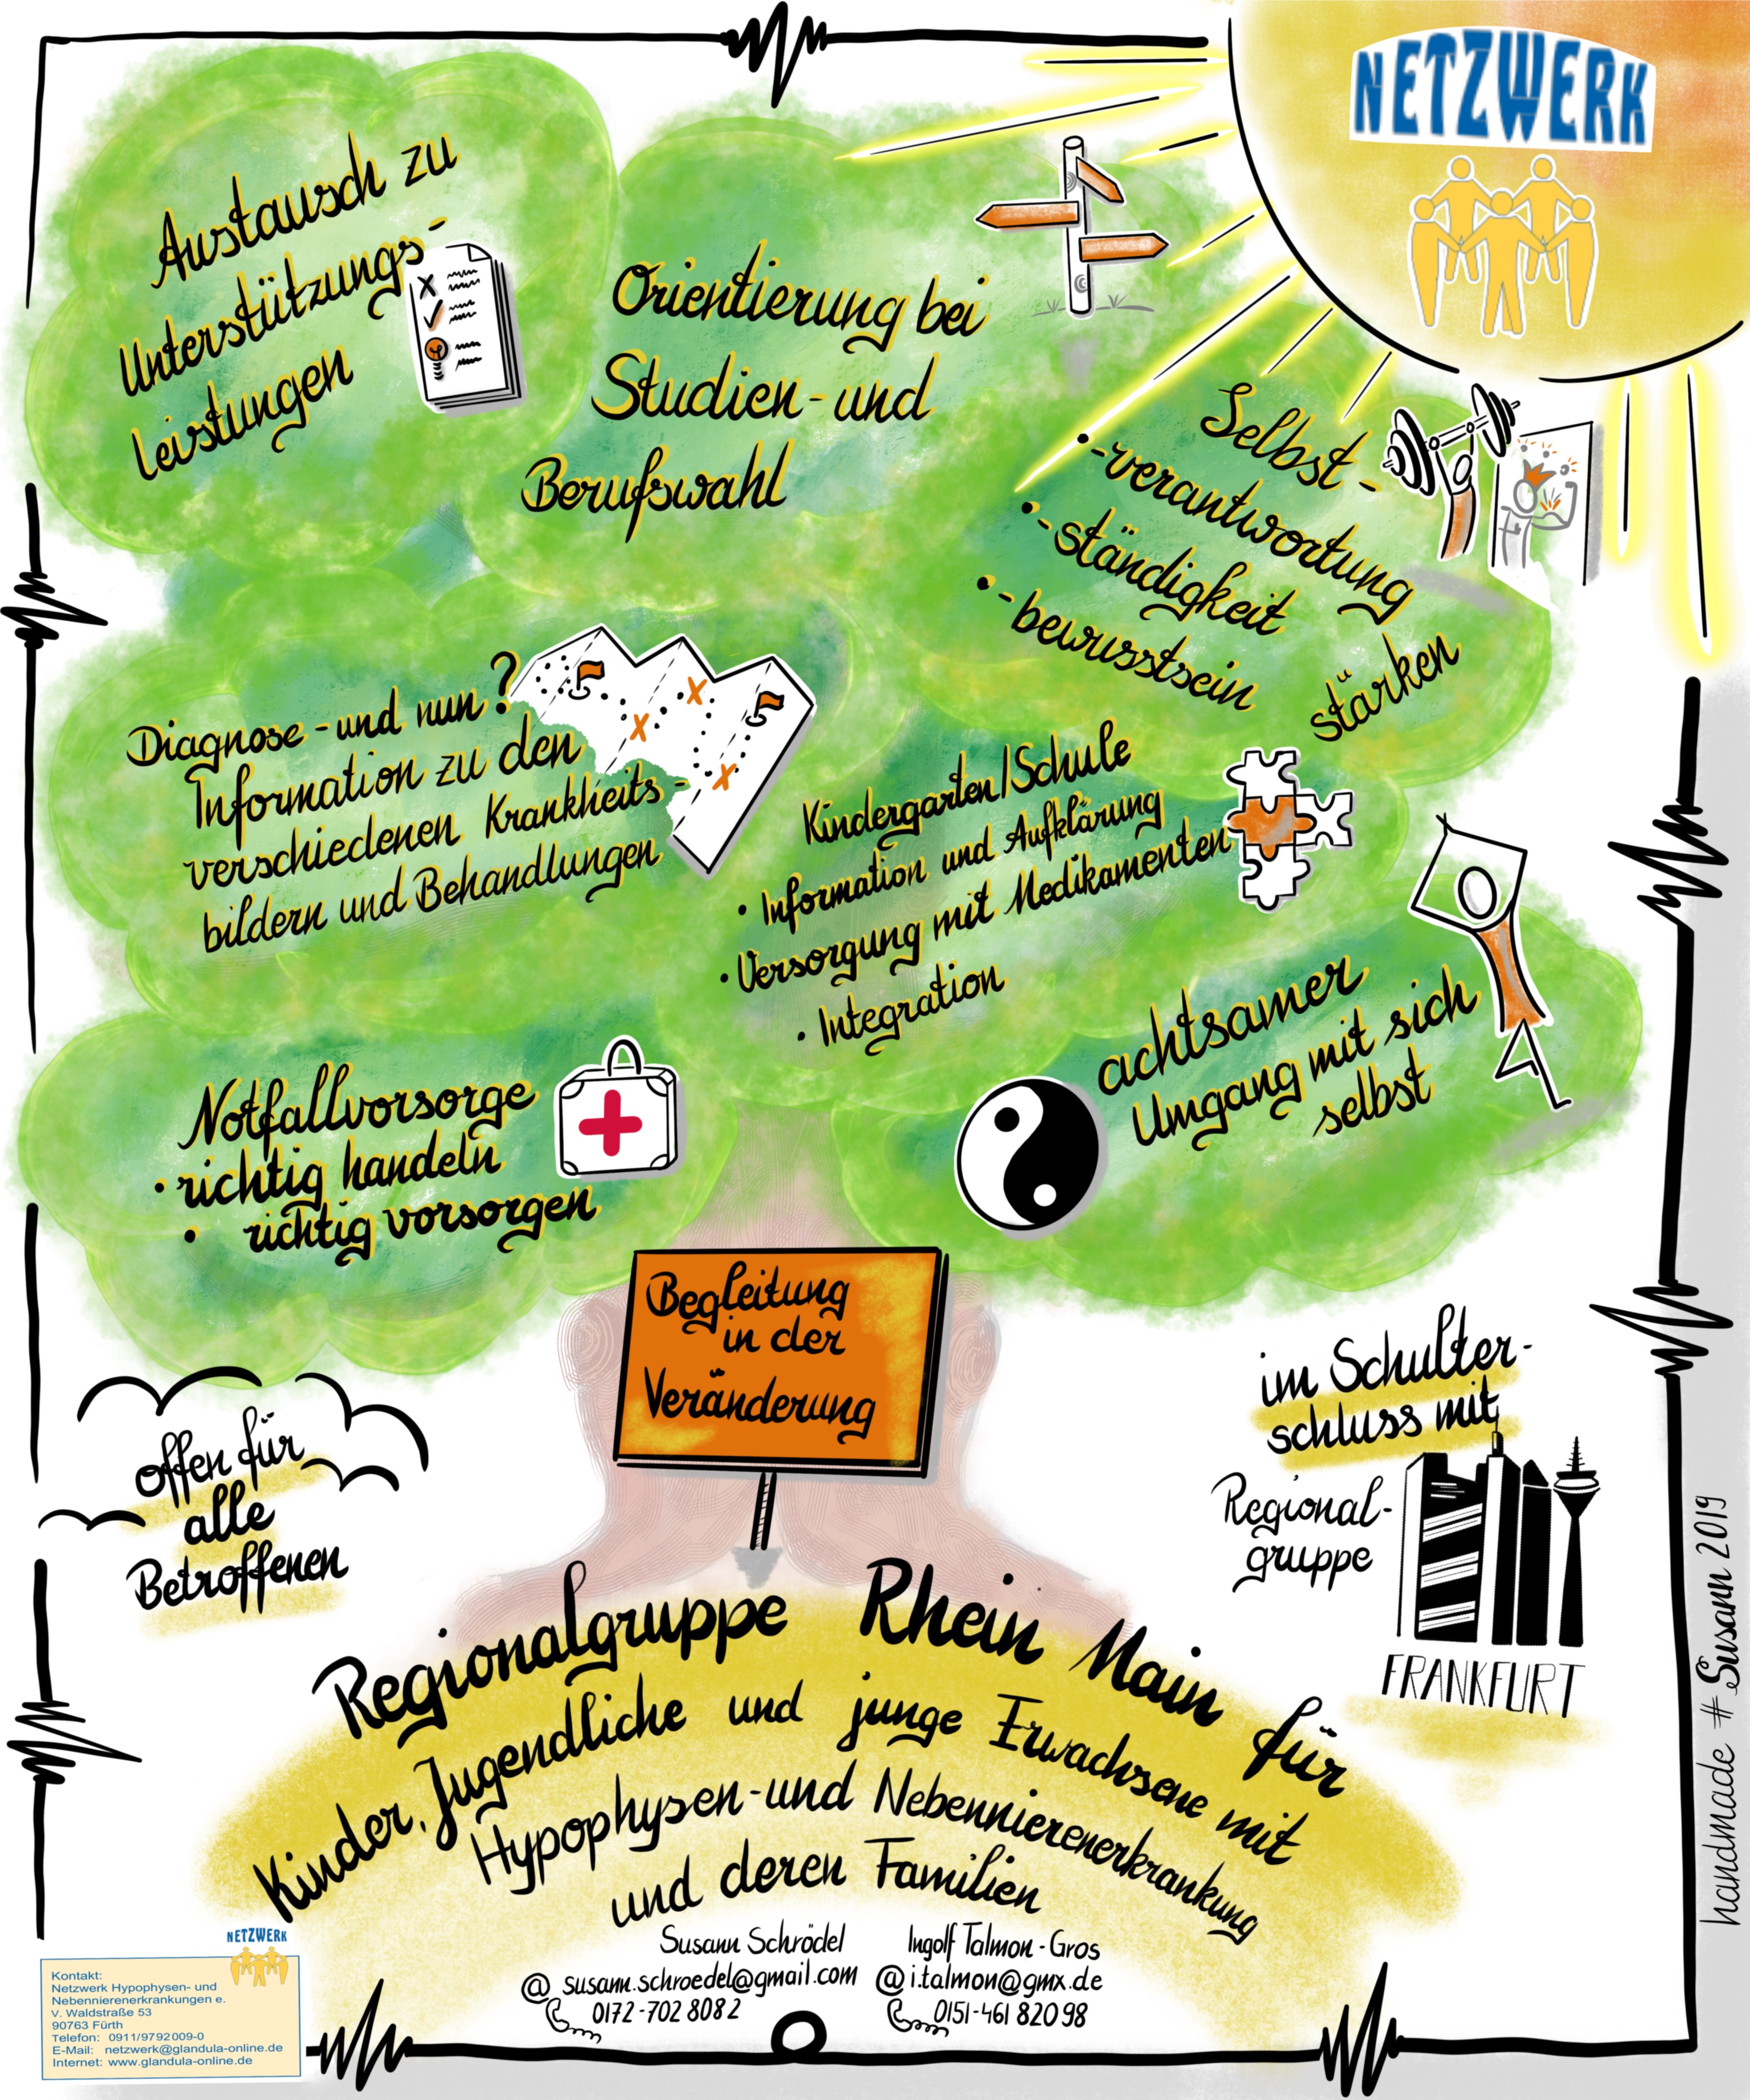 NETZWERK
Austausch zu
Unterstützungs-
leistungen
Orientierung bei
Studien- und
Berufswahl
Selbst-
• -verantwortung
• -ständigkeit
• -bewusstsein
stärken
Diagnose - und nun?
Information zu den
verschiedenen Krankheits-
bildern und Behandlungen
Kindergarten/Schule
• Information und Aufklärung
• Versorgung mit Medikamenten
• Integration
achtsamer
Umgang mit sich
selbst
Notfallvorsorge
• richtig handeln
• richtig vorsorgen
Begleitung
in der
Veränderung
offen für
alle
Betroffenen
im Schulter-
schluss mit
Regional-
gruppe
FRANKFURT
Regionalgruppe Rhein Main für
Kinder, Jugendliche und junge Erwachsene mit
Hypophysen- und Nebennierenerkrankung
und deren Familien
Susann Schrödel
@ susann.schroedel@gmail.com
0172-702 8082
Ingolf Talmon-Gros
@ i.talmon@gmx.de
0151-461 820 98
NETZWERK
Kontakt:
Netzwerk Hypophysen- und
Nebennierenerkrankungen e.
V. Waldstraße 53
90763 Fürth
Telefon: 0911/9792009-0
E-Mail: netzwerk@glandula-online.de
Internet: www.glandula-online.de
handmade # Susann 2019